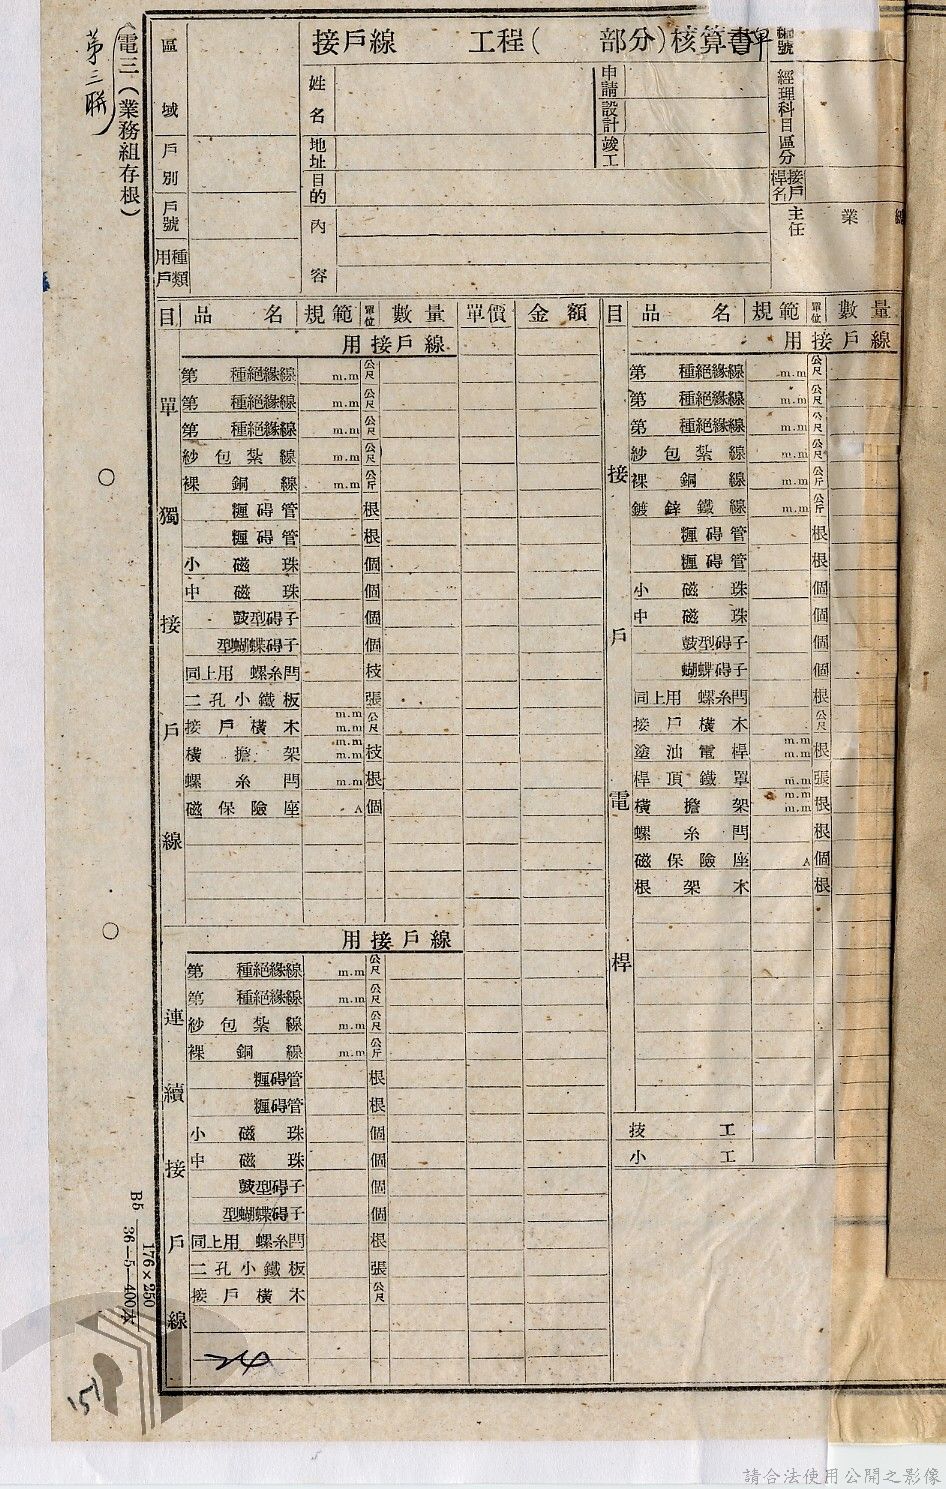 第三聯
(電三(業務組存根)
接戶線 工程( 部分)核算書單
編號
區域
戶別
戶號
用戶種類
姓名
地址
目的
內容
申請
設計
竣工
經理科目區分
接戶桿名
主任 業
目 品名 規範 單位 數量 單價 金額
單獨接戶線
用接戶線
第 種絕緣線 m.m 公尺
第 種絕緣線 m.m 公尺
第 種絕緣線 m.m 公尺
紗包紮線 m.m 公尺
裸銅線 m.m 公斤
碍管 根
碍管 根
小磁珠 個
中磁珠 個
鼓型碍子 個
型蝴蝶碍子 個
同上用 螺糸閂 枝
二孔小鐵板 張
接戶橫木 m.m m.m 公尺
橫擔架 m.m m.m 枝
螺糸閂 m.m 根
磁保險座 A 個
連續接戶線
用接戶線
第 種絕緣線 m.m 公尺
第 種絕緣線 m.m 公尺
紗包紮線 m.m 公尺
裸銅線 m.m 公斤
碍管 根
碍管 根
小磁珠 個
中磁珠 個
鼓型碍子 個
型蝴蝶碍子 個
同上用 螺糸閂 根
二孔小鐵板 張
接戶橫木 公尺
目 品名 規範 單位 數量
接戶電桿
用接戶線
第 種絕緣線 m.m 公尺
第 種絕緣線 m.m 公尺
第 種絕緣線 m.m 公尺
紗包紮線 m.m 公尺
裸銅線 m.m 公斤
鍍鋅鐵線 m.m 公斤
碍管 根
碍管 根
小磁珠 個
中磁珠 個
鼓型碍子 個
蝴蝶碍子 個
同上用 螺糸閂 根
接戶橫木 公尺
塗油電桿 m.m m.m 根
桿頂鐵罩 m.m 張
橫擔架 m.m m.m 根
螺糸閂 根
磁保險座 A 個
根架木 根
技工
小工
B5 176×250
36-5-400本
151
請合法使用公開之影像